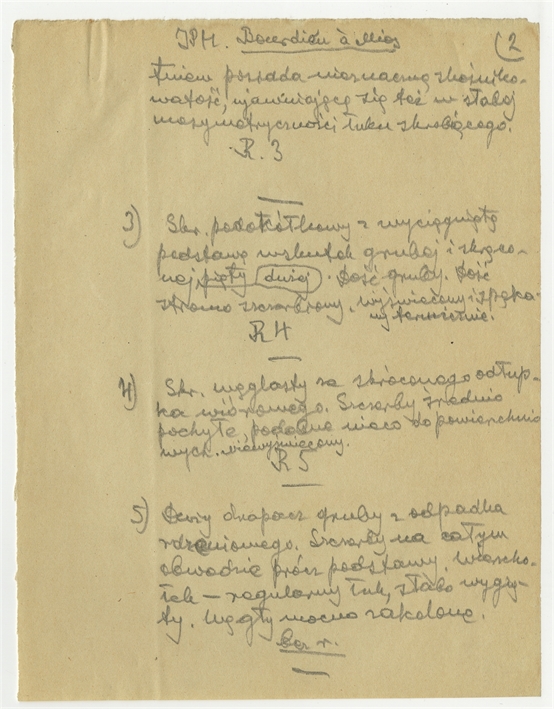 IPH. Bourdieu à Mios
(2
posiada nieznaczną skośniko-
watość, ujawniającą się też w słabej
niesymetryczności łuku skrobiącego.
R. 3
3) Skr. podokółkowy z wyciągniętą
podstawą wskutek grubej i skręco-
nej pięty dużej. Dość gruby. Dość
stromo szczerbiony, wyświecony i spęka-
ny termicznie.
R 4
4) Skr. węglasty ze skróconego odłup-
ka wiórowego. Szczerby średnio
pochyłe, podobne nieco do powierzchnio
wych. niewyświecony.
R 5
5) Duży drapacz gruby z odpadka
rdzeniowego. Szczerby na całym
obwodzie prócz podstawy. Wierzcho-
łek – regularny łuk, słabo wygię-
ty. Węgły mocno zakolone.
bez r.